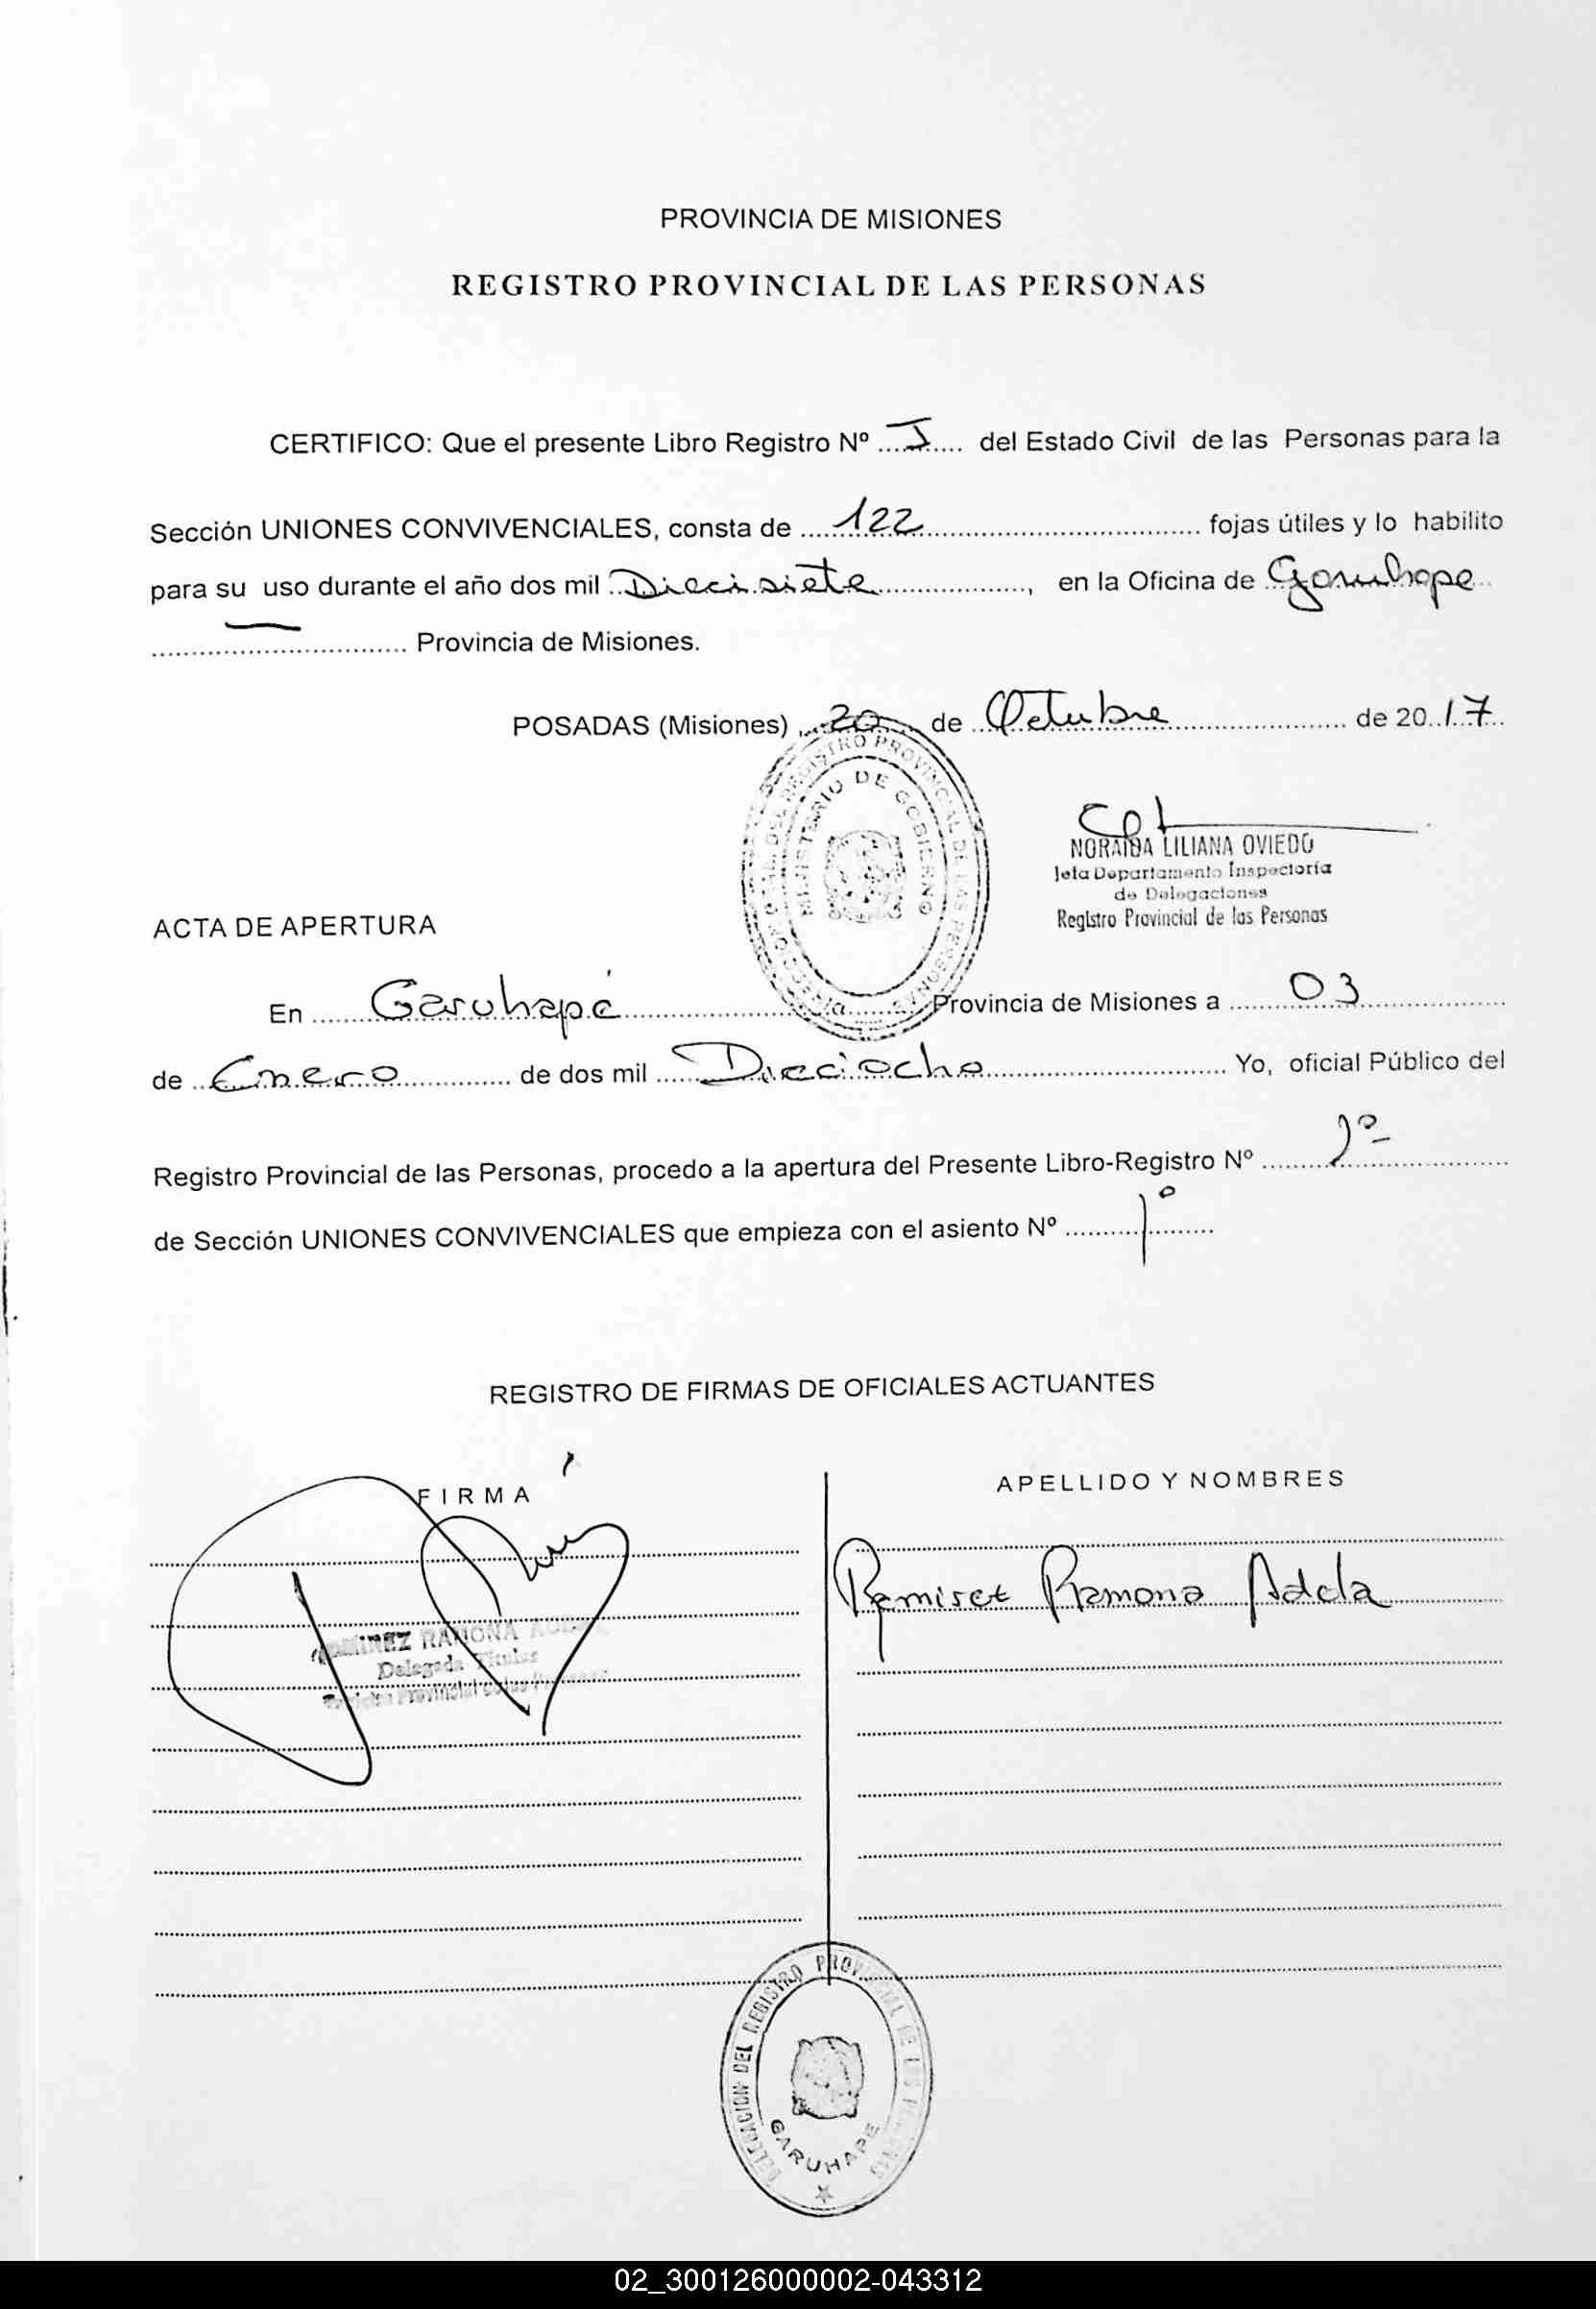 PROVINCIA DE MISIONES
REGISTRO PROVINCIAL DE LAS PERSONAS
CERTIFICO: Que el presente Libro Registro Nº ...I.... del Estado Civil de las Personas para la
Sección UNIONES CONVIVENCIALES, consta de ....122.... fojas útiles y lo habilito
para su uso durante el año dos mil ..Diecisiete...., en la Oficina de ..Garuhape..
.... Provincia de Misiones.
POSADAS (Misiones) , ..20.. de ..Octubre.... de 20..17..
DIRECCION GRAL. DEL REGISTRO PROVINCIAL DE LAS PERSONAS
MINISTERIO DE GOBIERNO
NORAIDA LILIANA OVIEDO
Jefa Departamento Inspectoría
de Delegaciones
Registro Provincial de las Personas
ACTA DE APERTURA
En ....Garuhapé.... Provincia de Misiones a ....03....
de ..Enero.... de dos mil ....Dieciocho.... Yo, oficial Público del
Registro Provincial de las Personas, procedo a la apertura del Presente Libro-Registro Nº ....1º-....
de Sección UNIONES CONVIVENCIALES que empieza con el asiento Nº ....1º....
REGISTRO DE FIRMAS DE OFICIALES ACTUANTES
FIRMA
APELLIDO Y NOMBRES
Ramirez Ramona Adela
RAMIREZ RAMONA ADELA
Delegada Titular
Registro Provincial de las Personas
DELEGACION DEL REGISTRO PROVINCIAL DE LAS PERSONAS
GARUHAPE
02_300126000002-043312